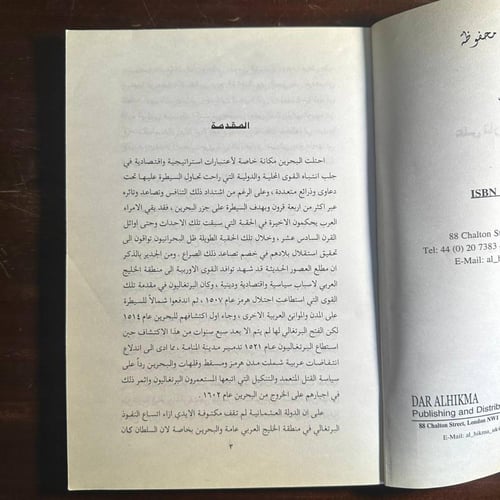 المقدمة
احتلت البحرين مكانة خاصة لأعتبارات استراتيجية واقتصادية في
جلب انتباه القوى المحلية والدولية التي راحت تحاول السيطرة عليها تحت
دعاوى وذرائع متعددة، وعلى الرغم من اشتداد ذلك التنافس وتصاعد وتائره
عبر اكثر من اربعة قرون وبهدف السيطرة على جزر البحرين، فقد بقي الامراء
العرب يحكمون الاخيرة في الحقبة التي سبقت تلك الاحداث وحتى اوائل
القرن السادس عشر، وخلال تلك الحقبة الطويلة ظل البحرانيون تواقون الى
تحقيق استقلال بلادهم في خضم تصاعد ذلك الصراع. ومن الجدير بالذكر
ان مطلع العصور الحديثة قد شهد توافد القوى الاوربية الى منطقة الخليج
العربي لاسباب سياسية واقتصادية ودينية، وكان البرتغاليون في مقدمة تلك
القوى التي استطاعت احتلال هرمز عام ١٥٠٧، ثم اندفعوا شمالاً للسيطرة
على المدن والموانئ العربية الاخرى، وجاء اول اكتشافهم للبحرين عام ١٥١٤
لكن الفتح البرتغالي لها لم يتم الا بعد سبع سنوات من هذا الاكتشاف حين
استطاع البرتغاليون عام ١٥٢١ تدمير مدينة المنامة، مما ادى الى اندلاع
انتفاضات عربية شملت مدن هرمز ومسقط وقلهات والبحرين رداً على
سياسة القتل المتعمد والتنكيل التي اتبعها المستعمرون البرتغاليون واثمر ذلك
في اجبارهم على الخروج من البحرين عام ١٦٠٢.
على ان الدولة العثمانية لم تقف مكتوفة الايدي ازاء اتساع النفوذ
البرتغالي في منطقة الخليج العربي عامة والبحرين بخاصة لان السلطان كان
٣
محفوظة
ISBN
88 Chalton St
Tel: 44 (0) 20 7383
E-Mail: al_h
DAR ALHIKMA
Publishing and Distrib
88 Chalton Street, London NW1
E-Mail: al_hikma_uk